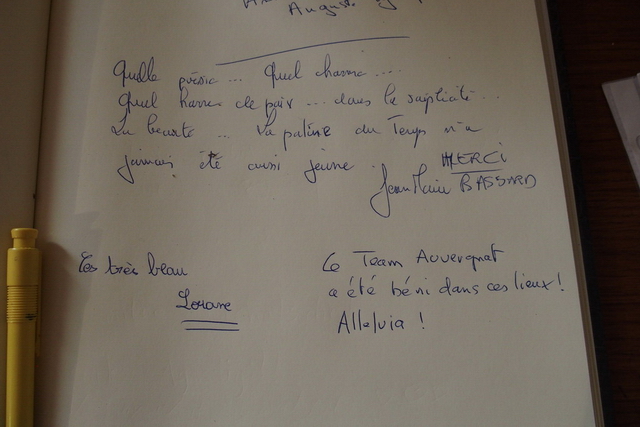 August
Quelle poésie ... Quel charme ....
Quel havre de paix ... dans la simplicité ...
La beauté ... La patine du Temps n'a
jamais été aussi jeune.
MERCI
Jean Marie BASSARD
Très très beau
Lorane
Le Team Auvergnat
a été béni dans ces lieux !
Alleluia !